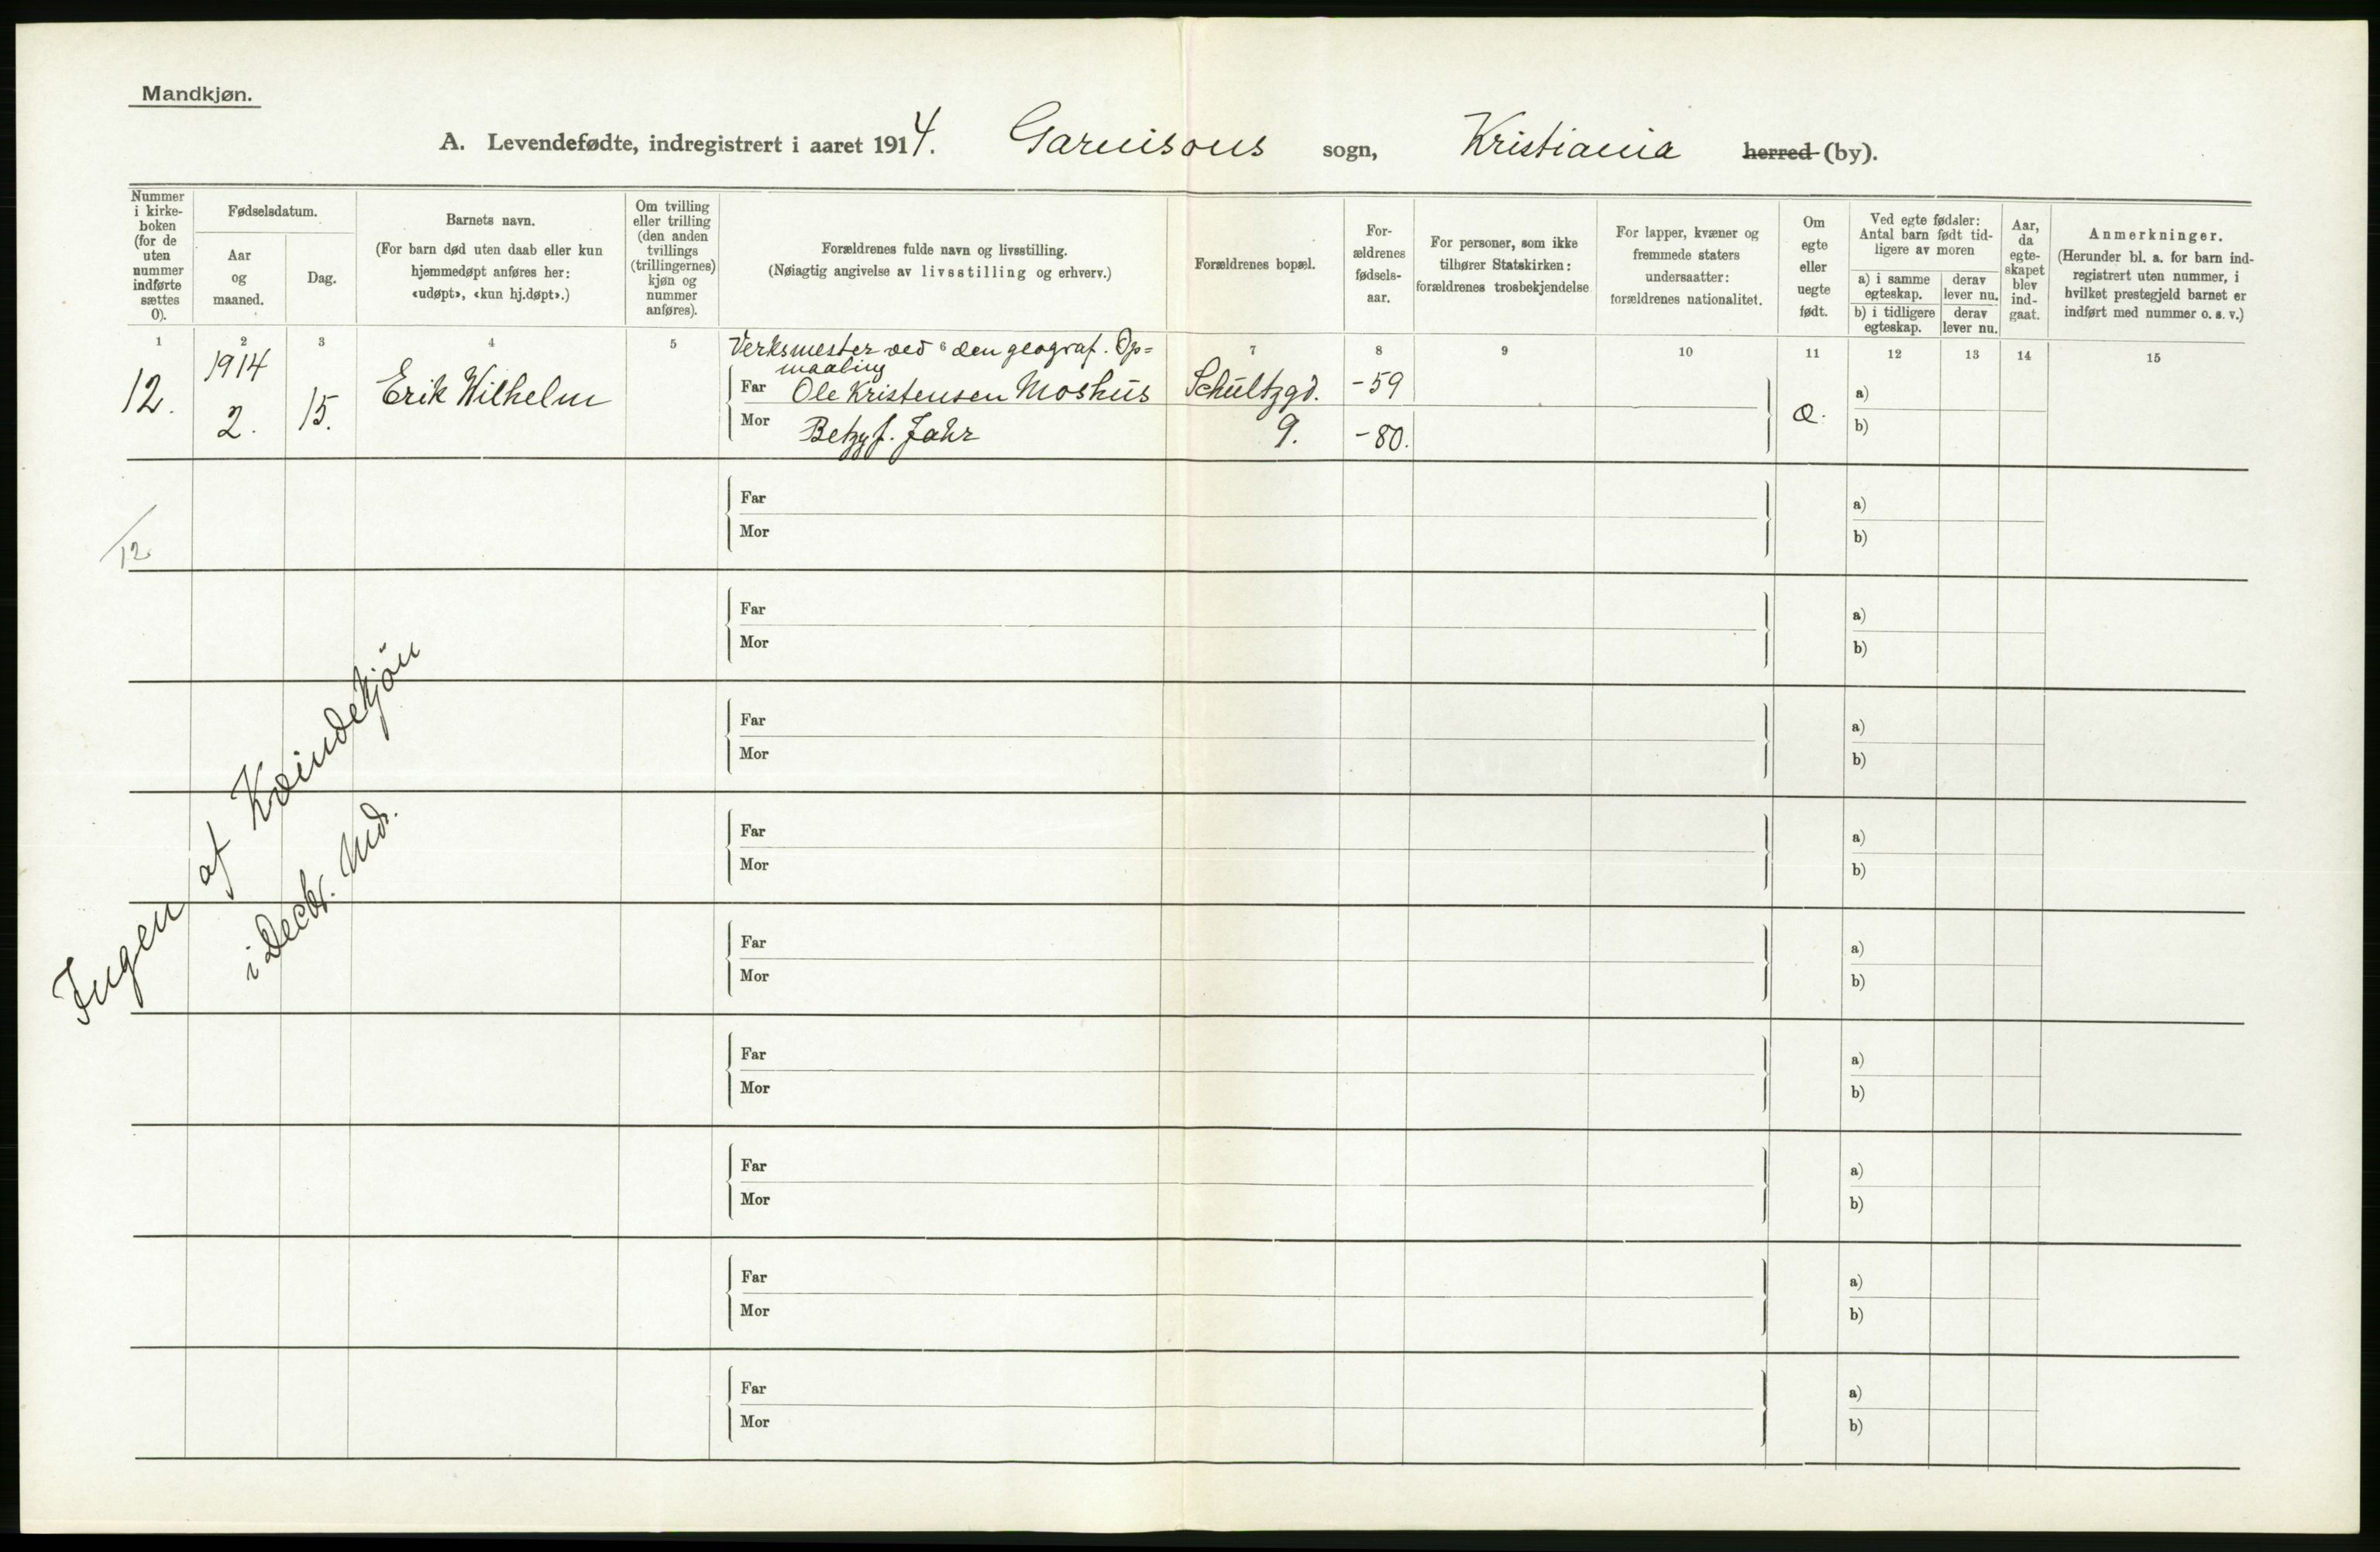 Mandkjøn.
A. Levendefødte, indregistrert i aaret 1914. Garnisons sogn, Kristiania herred (by).
Nummer i kirke- boken (for de uten nummer indførte sættes 0).
Fødselsdatum.
Aar og maaned.
Dag.
Barnets navn.
(For barn død uten daab eller kun hjemmedøpt anføres her: «udøpt», «kun hj.døpt».)
Om tvilling eller trilling (den anden tvillings (trillingernes) kjøn og nummer anføres).
Forældrenes fulde navn og livsstilling.
(Nøiagtig angivelse av livsstilling og erhverv.)
Forældrenes bopæl.
For- ældrenes fødsels- aar.
For personer, som ikke tilhører Statskirken: forældrenes trosbekjendelse
For lapper, kvæner og fremmede staters undersaatter: forældrenes nationalitet.
Om egte eller uegte født.
Ved egte fødsler: Antal barn født tid- ligere av moren
a) i samme egteskap.
derav lever nu.
b) i tidligere egteskap.
derav lever nu.
Aar, da egte- skapet blev ind- gaat.
Anmerkninger.
(Herunder bl. a. for barn ind- registrert uten nummer, i hvilket prestegjeld barnet er indført med nummer o. s. v.)
1 2 3 4 5 6 7 8 9 10 11 12 13 14 15
Verksmester ved den geograf. Op=
maaling
12. 1914 2. 15. Erik Wilhelm
Far Ole Kristensen Moshus Schultzgd. -59
Mor Betzy f. Jahr 9. -80.
a)
b)
12
Far a)
Mor b)
Far a)
Mor b)
Far a)
Mor b)
Far a)
Mor b)
Far a)
Mor b)
Far a)
Mor b)
Far a)
Mor b)
Far a)
Mor b)
Far a)
Mor b)
Ingen af Kvindekjön
i Decbr. Md.